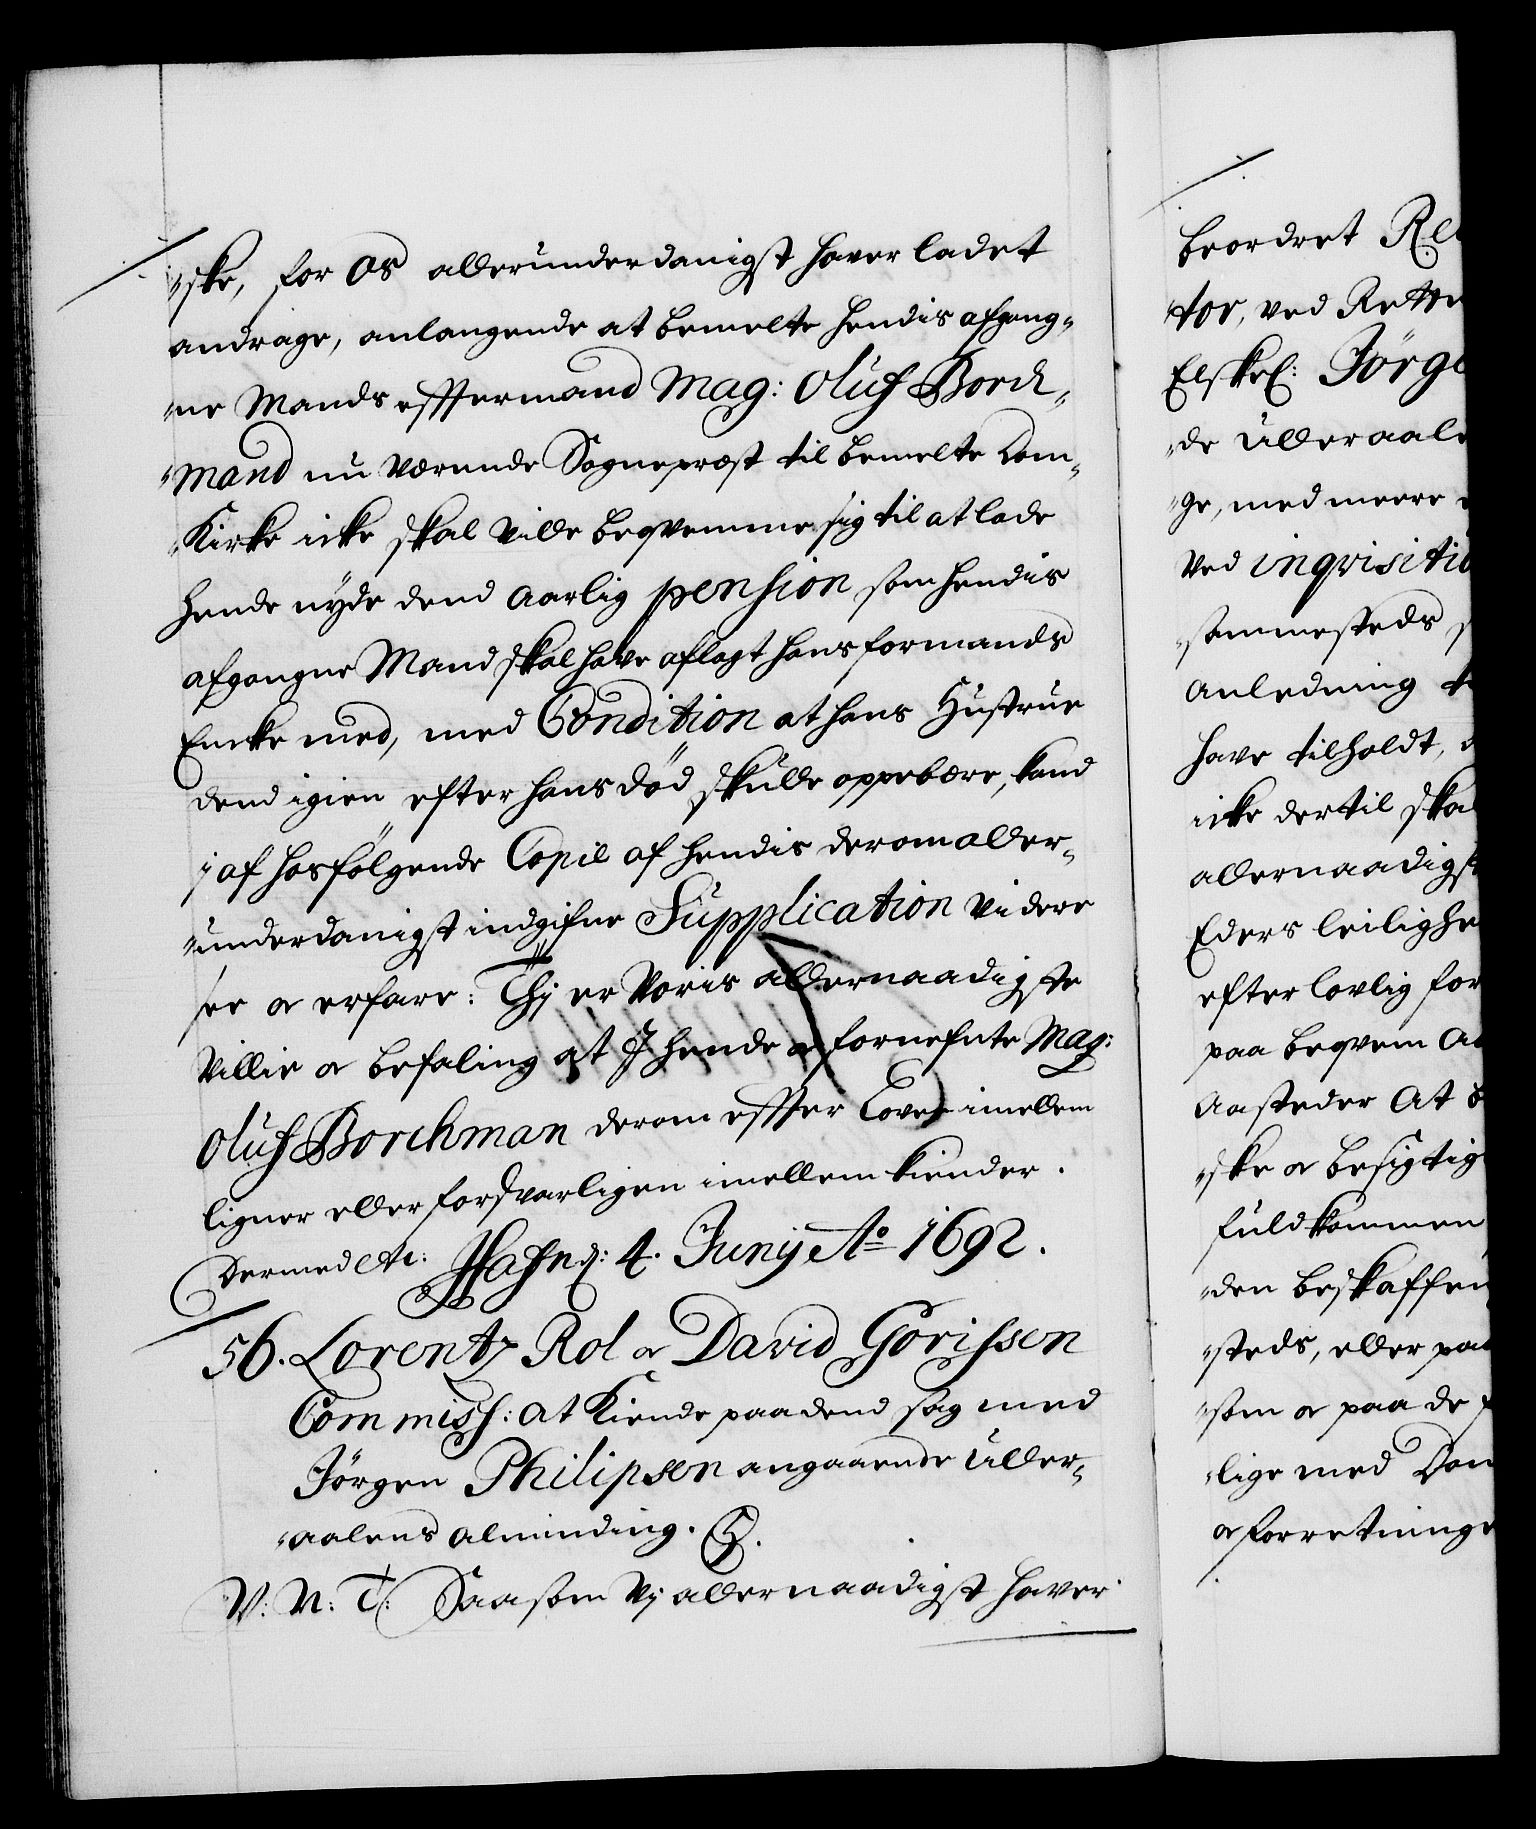 "ske, for os allerunderdanigst haver ladet
andrage, anlangende at bemelte hendis afgang„
„ne Mands efftermand Mag: Oluf Borch„
„mand nu værende Sognepræst til bemelte Dom„
„Kirke icke skal ville beqvemme sig til at lade
hende nyde dend aarlig pension, som hendis
afgangne Mand skal have aflagt hans formands
Encke med, med Condition at hans Hustrue
dend igien efter hans død skulle oppebære, kand
i af hosfølgende Copie af hendis derom aller„
„underdanigst indgifne Supplication videre
see og erfare: Thj er Voris allernaadigste
Villie og befaling at I hende og fornefnte Mag:
Oluf Borchman derom effter Loven imellem
ligner eller forsvarligen imellem kiender.
Dermed etc: Hafn: 4. Junij Ao 1692.
56. Lorentz Rol og David Gorissen
Commiss: at Kiende paa dend sag med
Jørgen Philipsen angaaende Uller„
„aalens alminding. S.
V: N: T: Saasom Vj allernaadigst haver
beordret
tor, ved
Elskel: Jørge
„de Ulleraale
„ge, med meere
ved inqvisitio
„sammesteds
anledning
have tilholdt,
icke dertil skal
allernaadigst
Eders leilighe
efter lovlig for
paa beqvem
Aasteder At
„ske og besigtig
fuldkommen
„den beskaffen
„steds, eller paa
„som og paa de
„lige med Dom
og forretninge